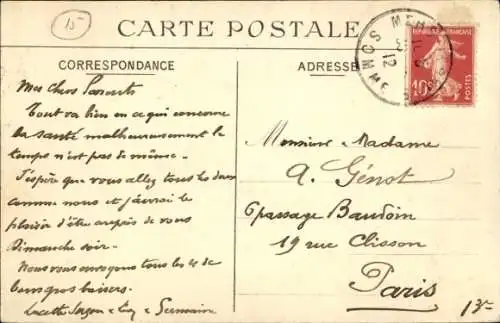 15
CARTE POSTALE
CORRESPONDANCE
ADRESSE
REPUBLIQUE FRANÇAISE
10c
POSTES
Mes chers Parents
Tout va bien en ce qui concerne
la santé malheureusement le
temps n'est pas de même.
J'espère que vous allez tous les deux
comme nous et j'aurai le
plaisir d'être auprès de vous
Dimanche soir.
Nous vous envoyons tous les 4 de
bons gros baisers.
Lucette et Germaine
Monsieur & Madame
A. Génot
6 passage Baudoin
19 rue Clisson
Paris
13e